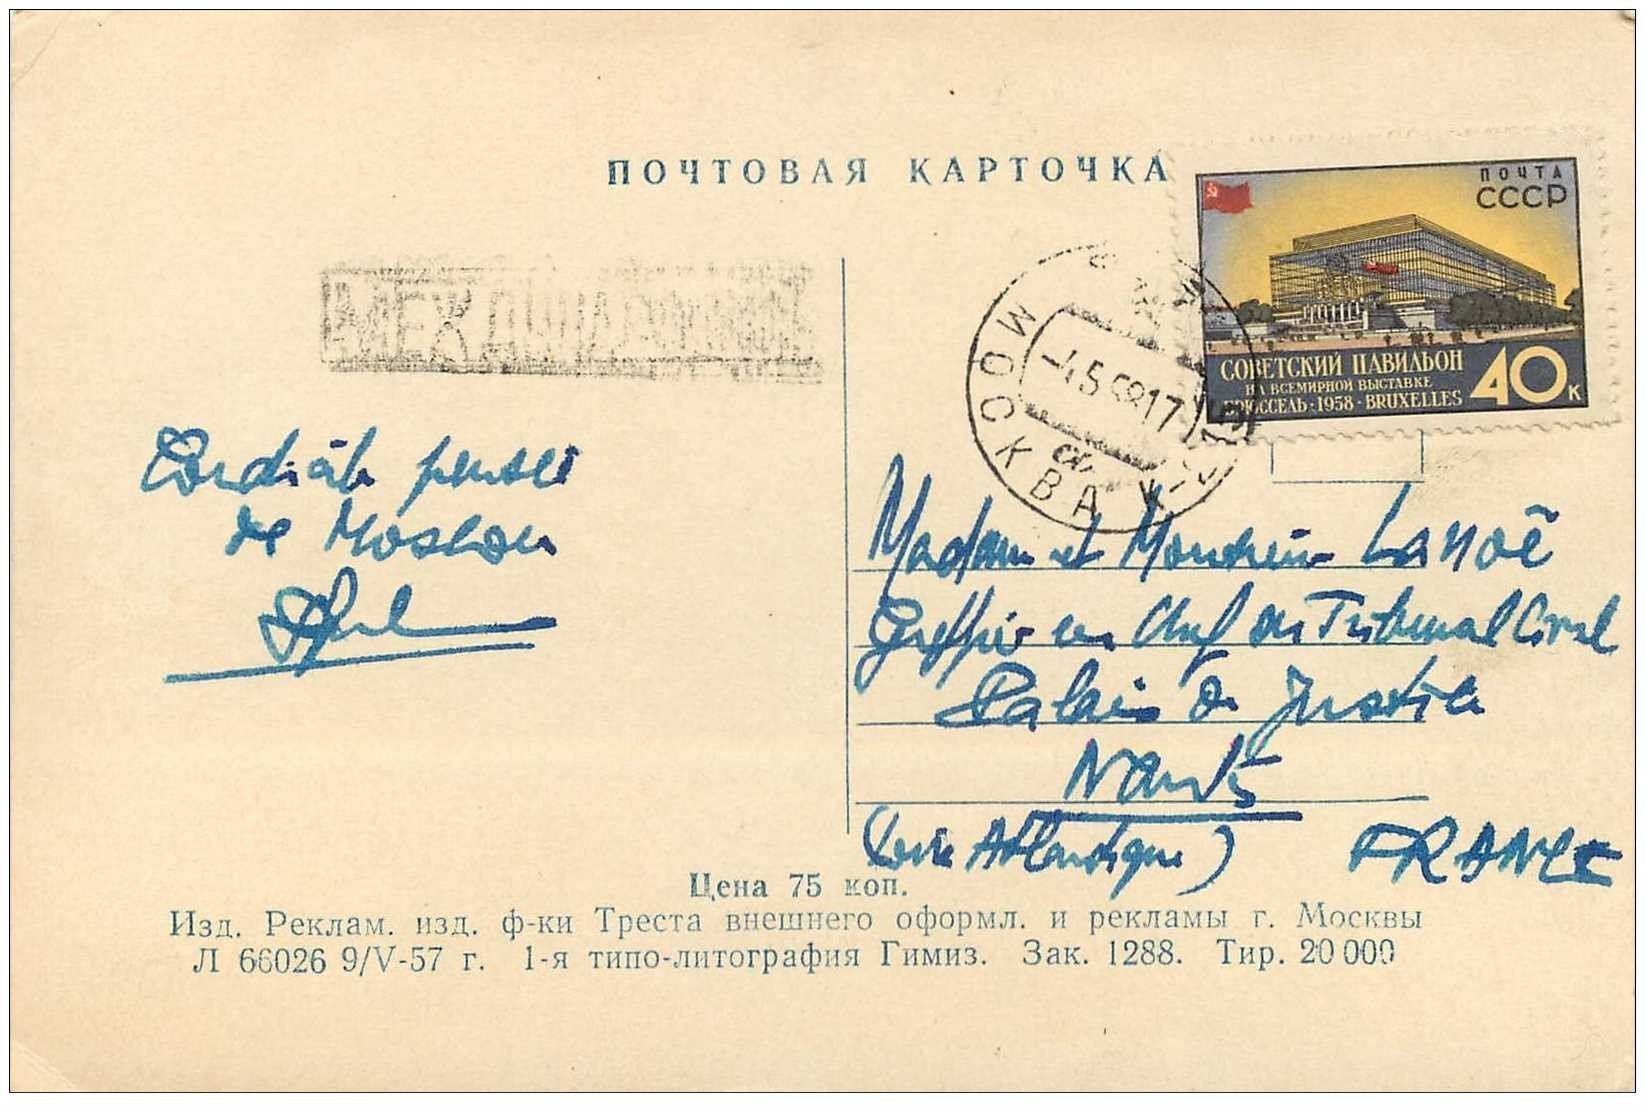 ПОЧТОВАЯ КАРТОЧКА
ПОЧТА
СССР
СОВЕТСКИЙ ПАВИЛЬОН
НА ВСЕМИРНОЙ ВЫСТАВКЕ
БРЮССЕЛЬ·1958·BRUXELLES
40 К
МЕЖДУНАРОДНОЕ
МОСКВА
-4.5 58 17
Cordiale pensée
de Moscou
Madame et Monsieur Lanoë
Greffier en Chef du Tribunal Civil
Palais de Justice
Nantes
(Loire Atlantique) FRANCE
Цена 75 коп.
Изд. Реклам. изд. ф-ки Треста внешнего оформл. и рекламы г. Москвы
Л 66026 9/V-57 г. 1-я типо-литография Гимиз. Зак. 1288. Тир. 20 000